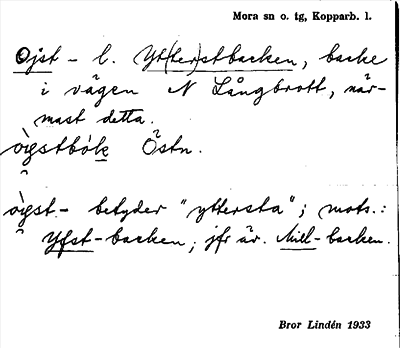 Mora sn o. tg, Kopparb. l.
Ojst- l. Yt(ter)stbacken, backe
i vägen N Långbrott, när-
mast detta.
òi̯gstbók Östn.
òi̯gst- betyder "yttersta"; mots.:
Yfst-backen; jfr äv. Mill-backen.
Bror Lindén 1933